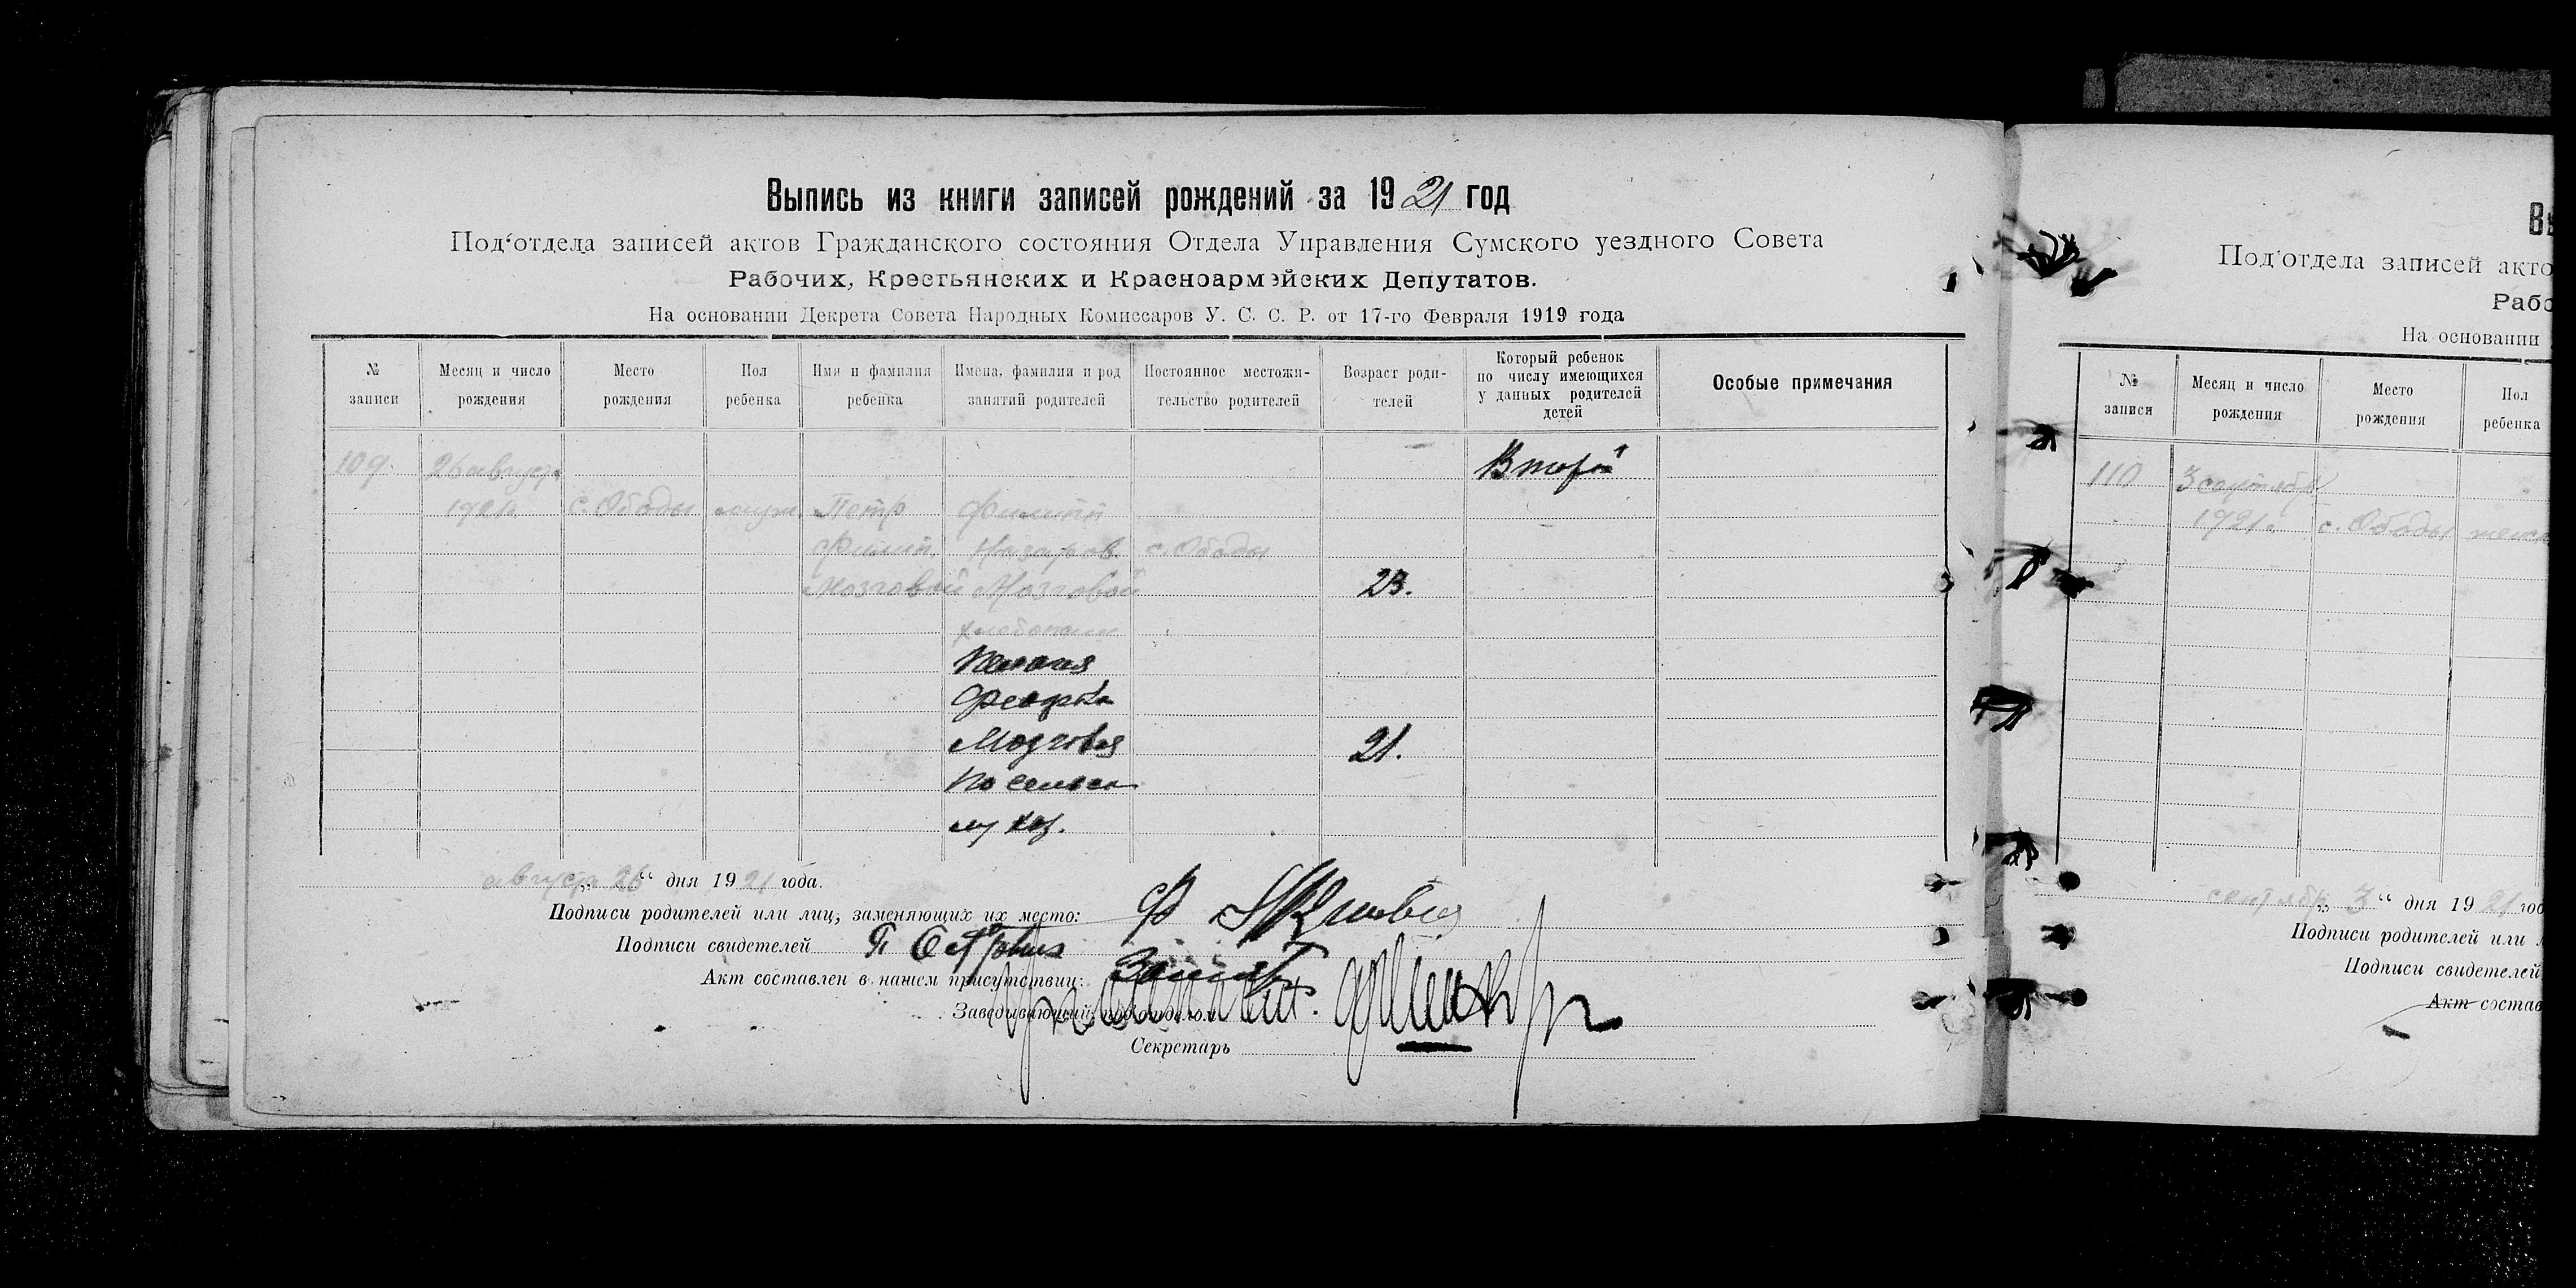 Выпись из книги записей рождений за 1921 год
Под'отдела записей актов Гражданского состояния Отдела Управления Сумского уездного Совета
Рабочих, Крестьянских и Красноармейских Депутатов.
На основании Декрета Совета Народных Комиссаров У. С. С. Р. от 17-го Февраля 1919 года
№ записи
Месяц и число рождения
Место рождения
Пол ребенка
Имя и фамилия ребенка
Имена, фамилии и род занятий родителей
Постоянное местожительство родителей
Возраст родителей
Который ребенок по числу имеющихся у данных родителей детей
Особые примечания
109. 26 август Второй
1921 г. с. Ободы муж. Петр Филипп
Филип. Назаров. с. Ободы
Мозговой Мозговой 23.
хлебопаш
Мозговая 21.
по сельск
му хоз.
августа „26“ дня 1921 года.
Подписи родителей или лиц, заменяющих их место: Ф
Подписи свидетелей П
Акт составлен в нашем присутствии:
Заведывающий подотделом
Секретарь
Вы
Под'отдела записей акто
Рабо
На основании
№ записи
Месяц и число рождения
Место рождения
Пол ребенка
110 3 сентября
1921 г. с. Ободы женск
сентября „3“ дня 1921 год
Подписи родителей или л
Подписи свидетелей
Акт состав